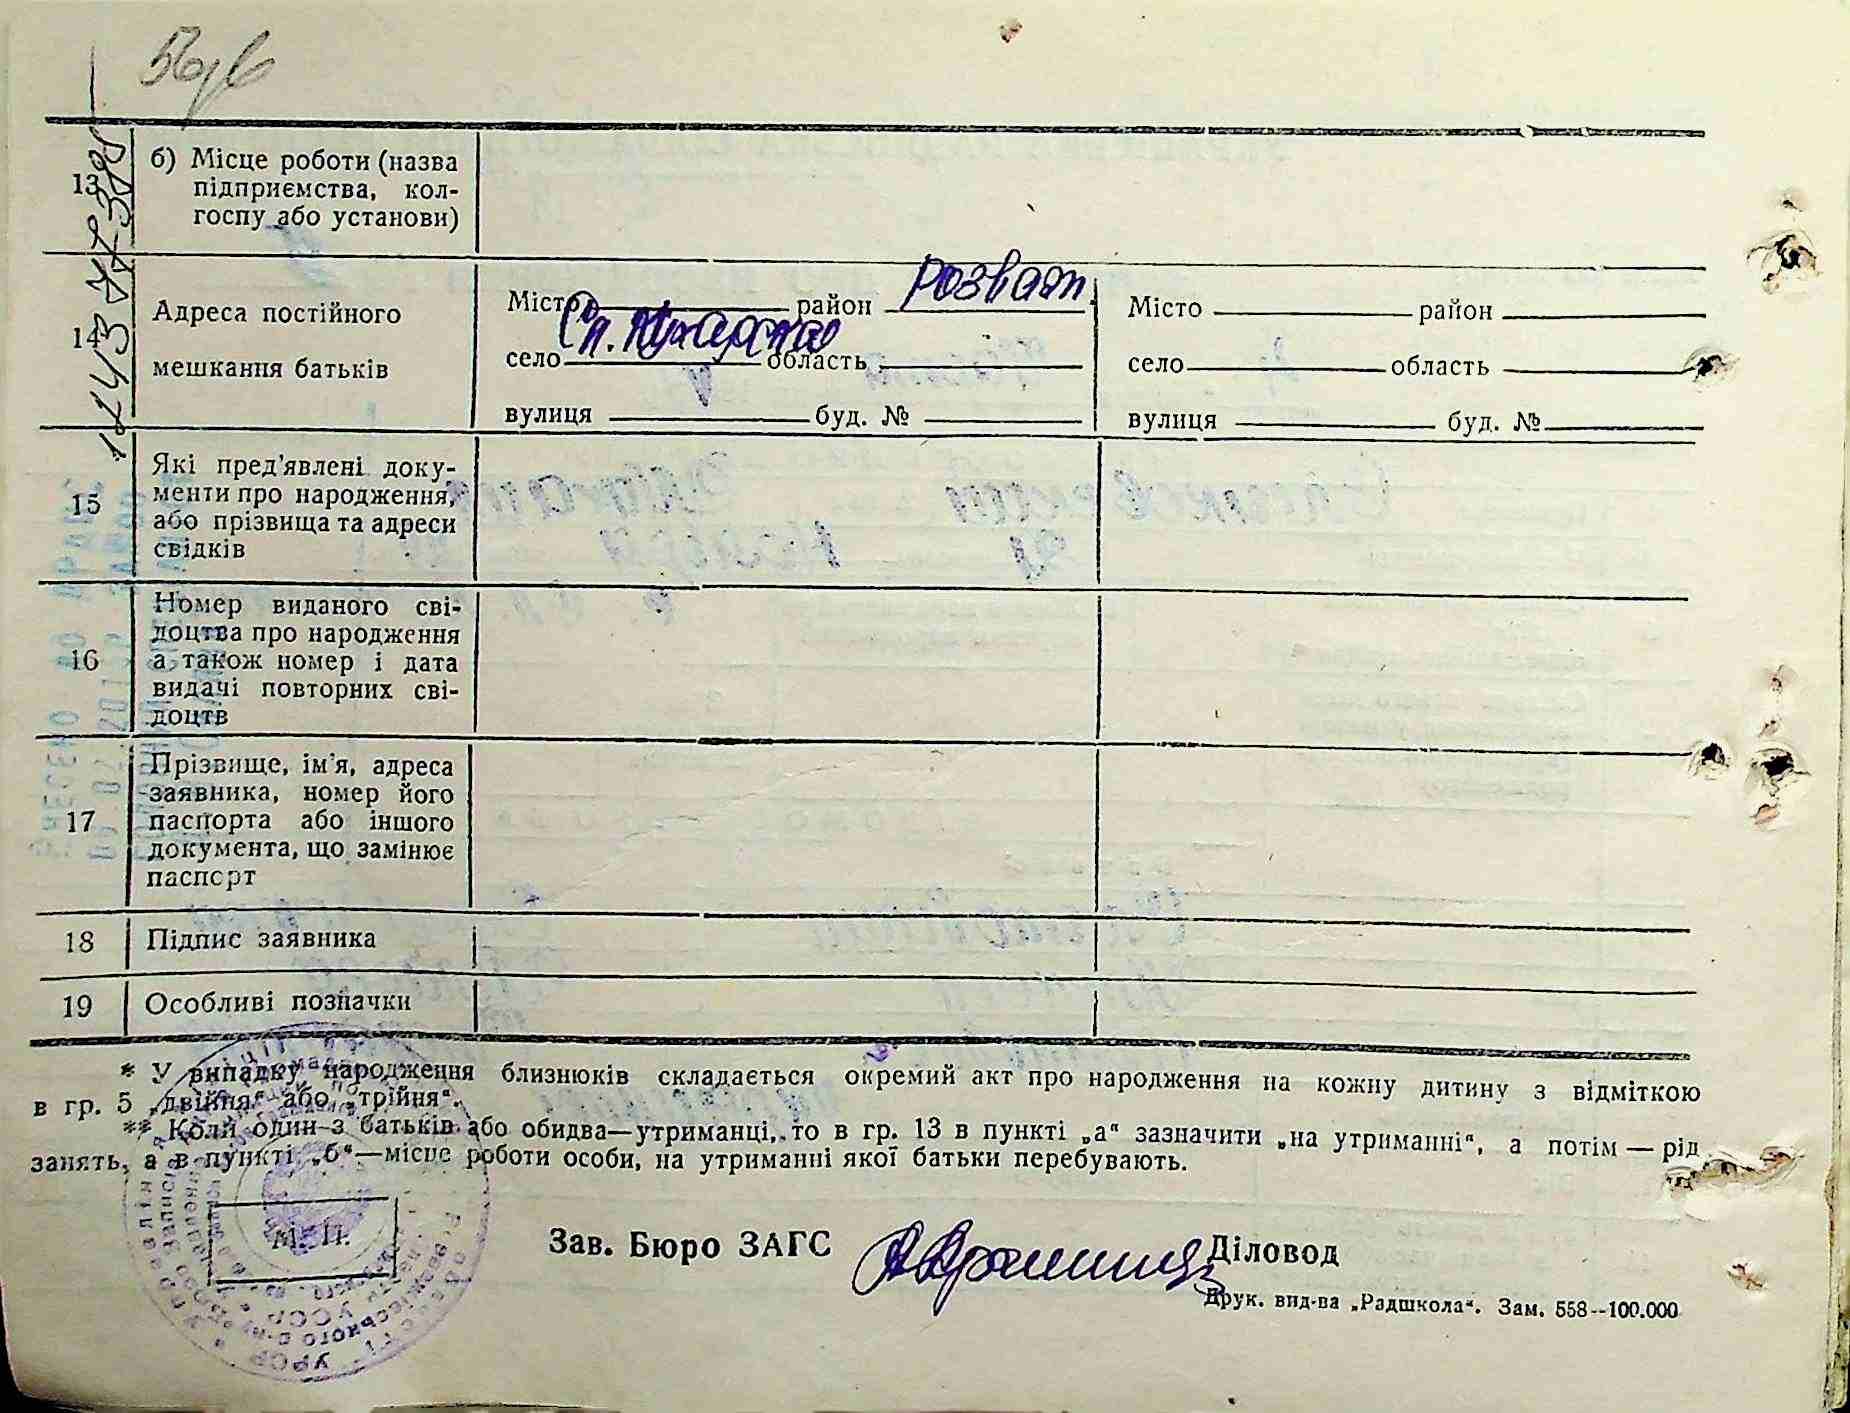 13
б) Місце роботи (назва
підприємства, кол-
госпу або установи)
14
Адреса постійного
мешкання батьків
Місто район Розваж.
село область
вулиця буд. №
Місто район
село область
вулиця буд. №
15
Які пред'явлені доку-
менти про народження,
або прізвища та адреси
свідків
16
Номер виданого сві-
доцтва про народження
а також номер і дата
видачі повторних сві-
доцтв
17
Прізвище, ім'я, адреса
заявника, номер його
паспорта або іншого
документа, що замінює
паспорт
18 Підпис заявника
19 Особливі позначки
* У випадку народження близнюків складається окремий акт про народження на кожну дитину з відміткою
в гр. 5 „двійня“ або „трійня“.
** Коли один з батьків або обидва—утриманці, то в гр. 13 в пункті „а“ зазначити „на утриманні“, а потім — рід
занять, а в пункті „б“—місце роботи особи, на утриманні якої батьки перебувають.
М. П.
Зав. Бюро ЗАГС
Діловод
Друк. вид-ва „Радшкола“. Зам. 558--100.000